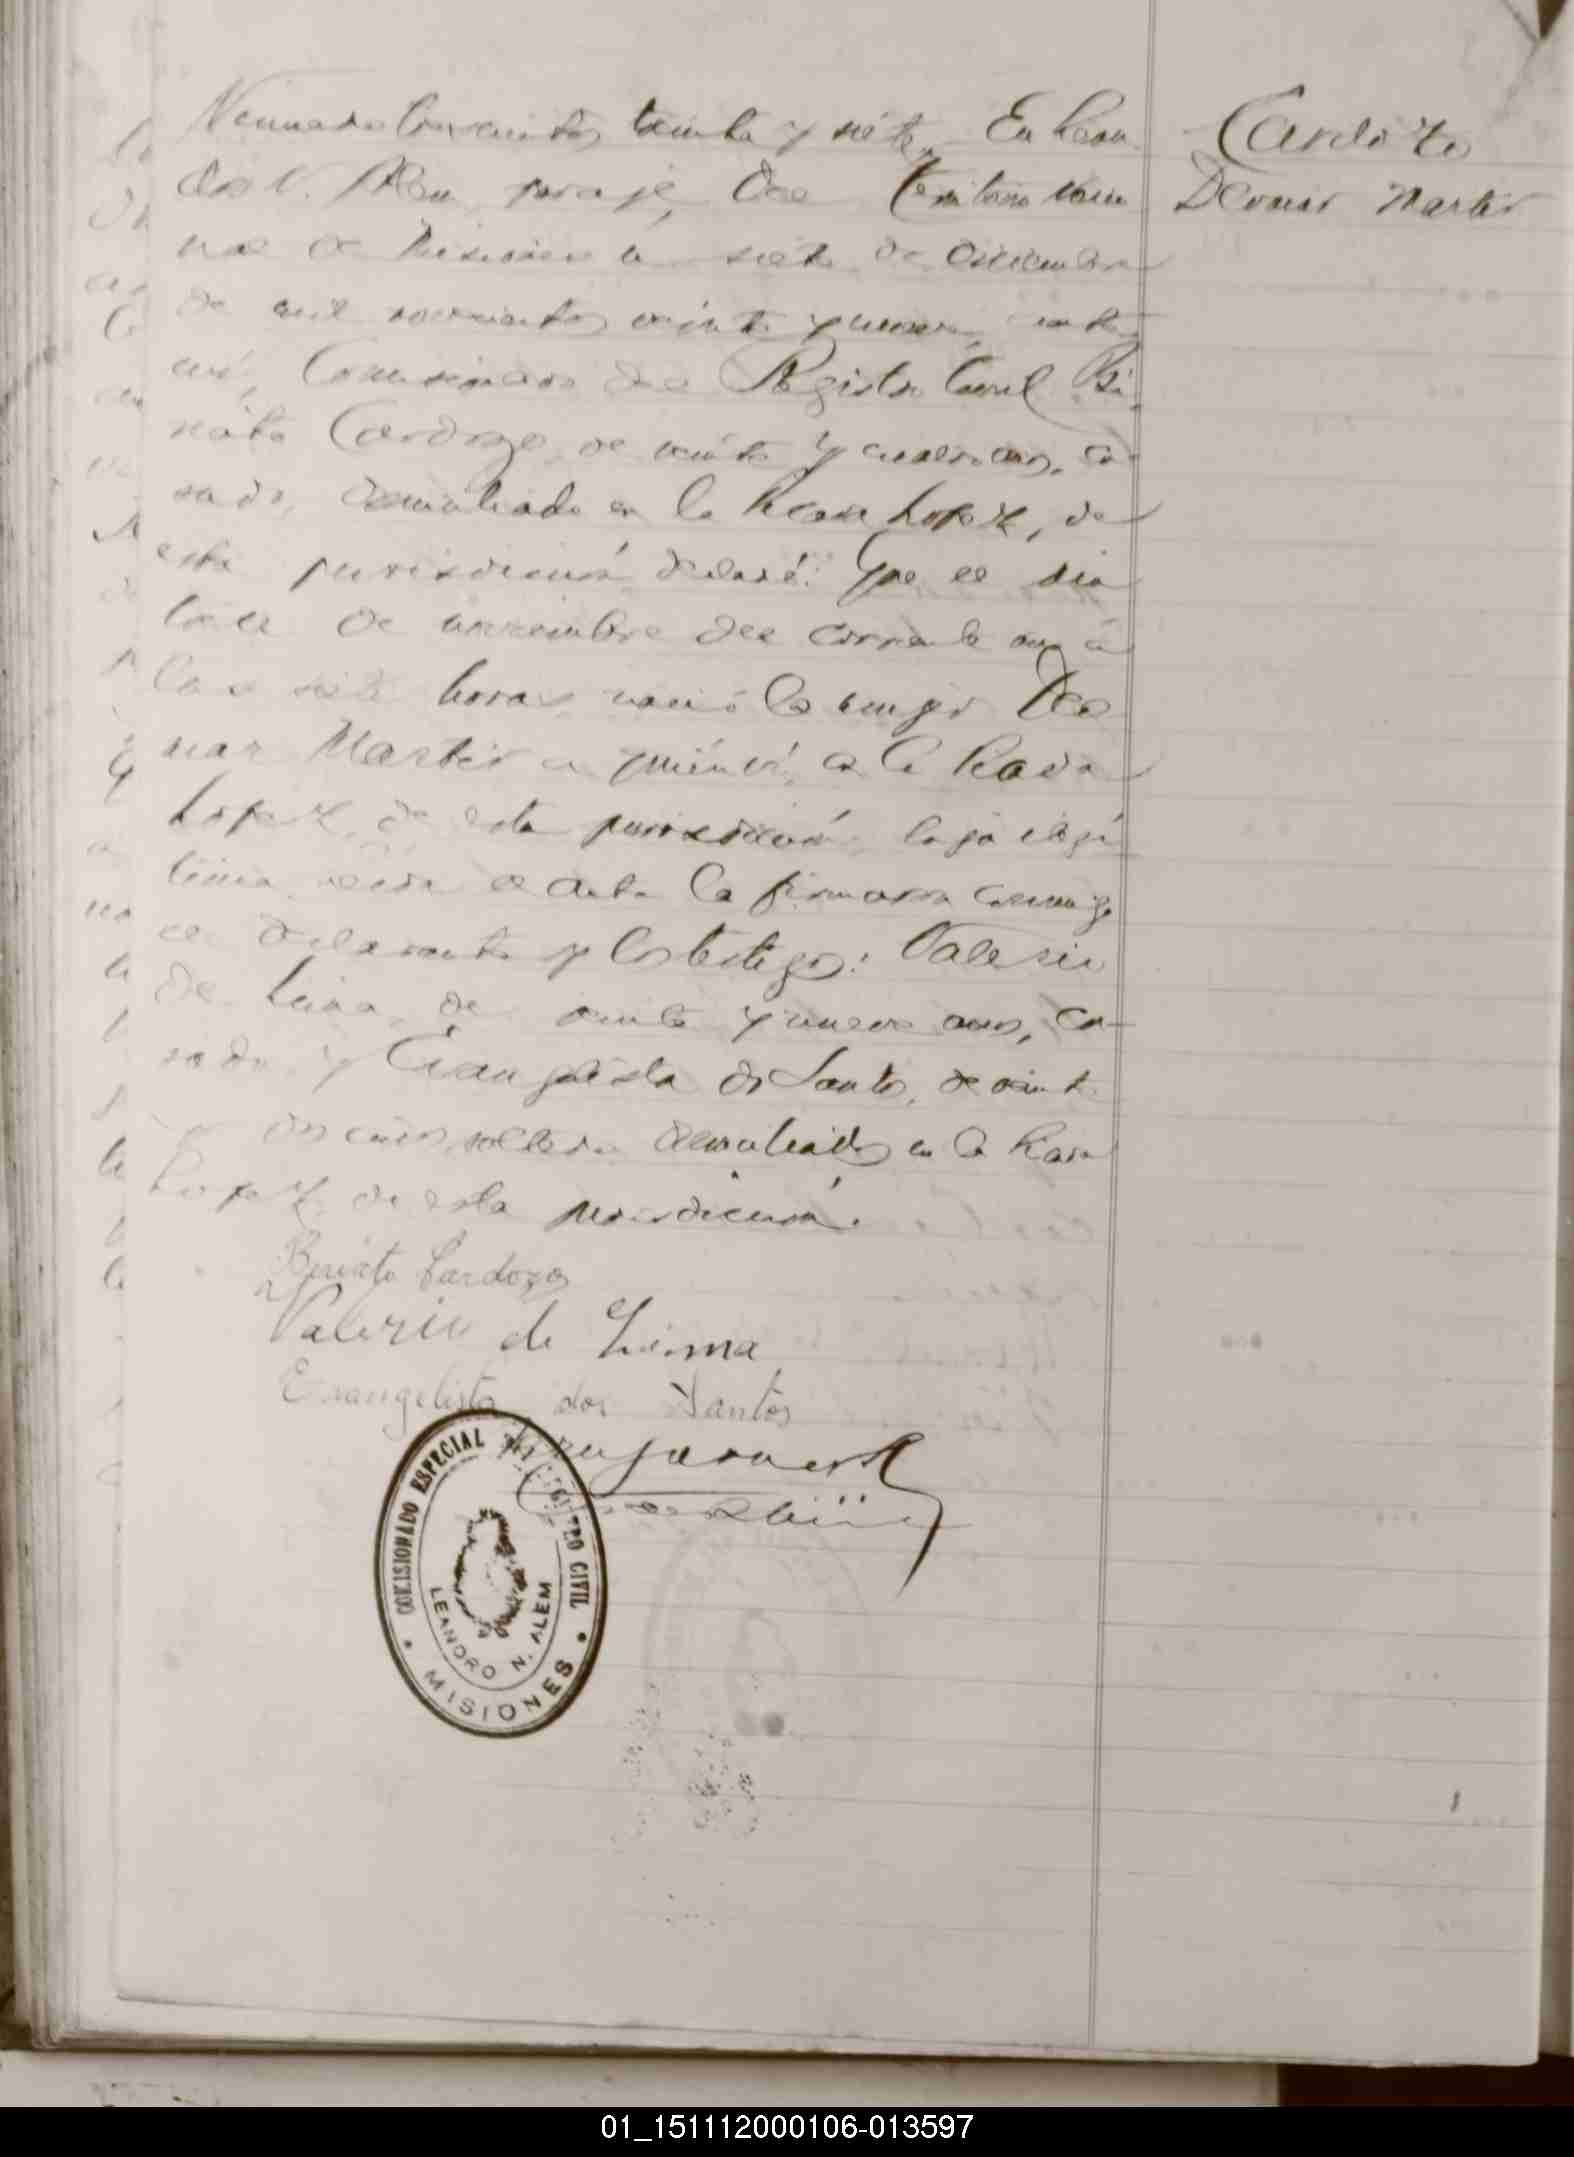 Numero trescientos treinta y siete. En Lean
dro N. Alem paraje, del Territorio Nacio
nal de Misiones a siete de diciembre
de mil novecientos veinte y nueve, ante
mí, Comisionado del Registro Civil, Be
niato Cardozo, de veinte y años, ca
sado, domiciliado en la Lopez, de
esta jurisdicción declaró: Que el día
trece de noviembre del corriente año á
las siete horas nació la mujer Deo
mar Martir a quién ví, en la
Lopez, de esta jurisdicción,
el acta la firmaron conmigo
el declarante y los testigos: Valerio
de Lima, de veinte y nueve años, ca-
sado y Evangelista do Santos, de veinte
y dos años, soltero domiciliados en la
Lopez de esta jurisdicción.
Beniato Cardozo
Valerio de Lima
Evangelista dos Santos
COMISIONADO ESPECIAL DEL REGISTRO CIVIL
LEANDRO N. ALEM
MISIONES
Cardozo
Deomar Martir
01_151112000106-013597